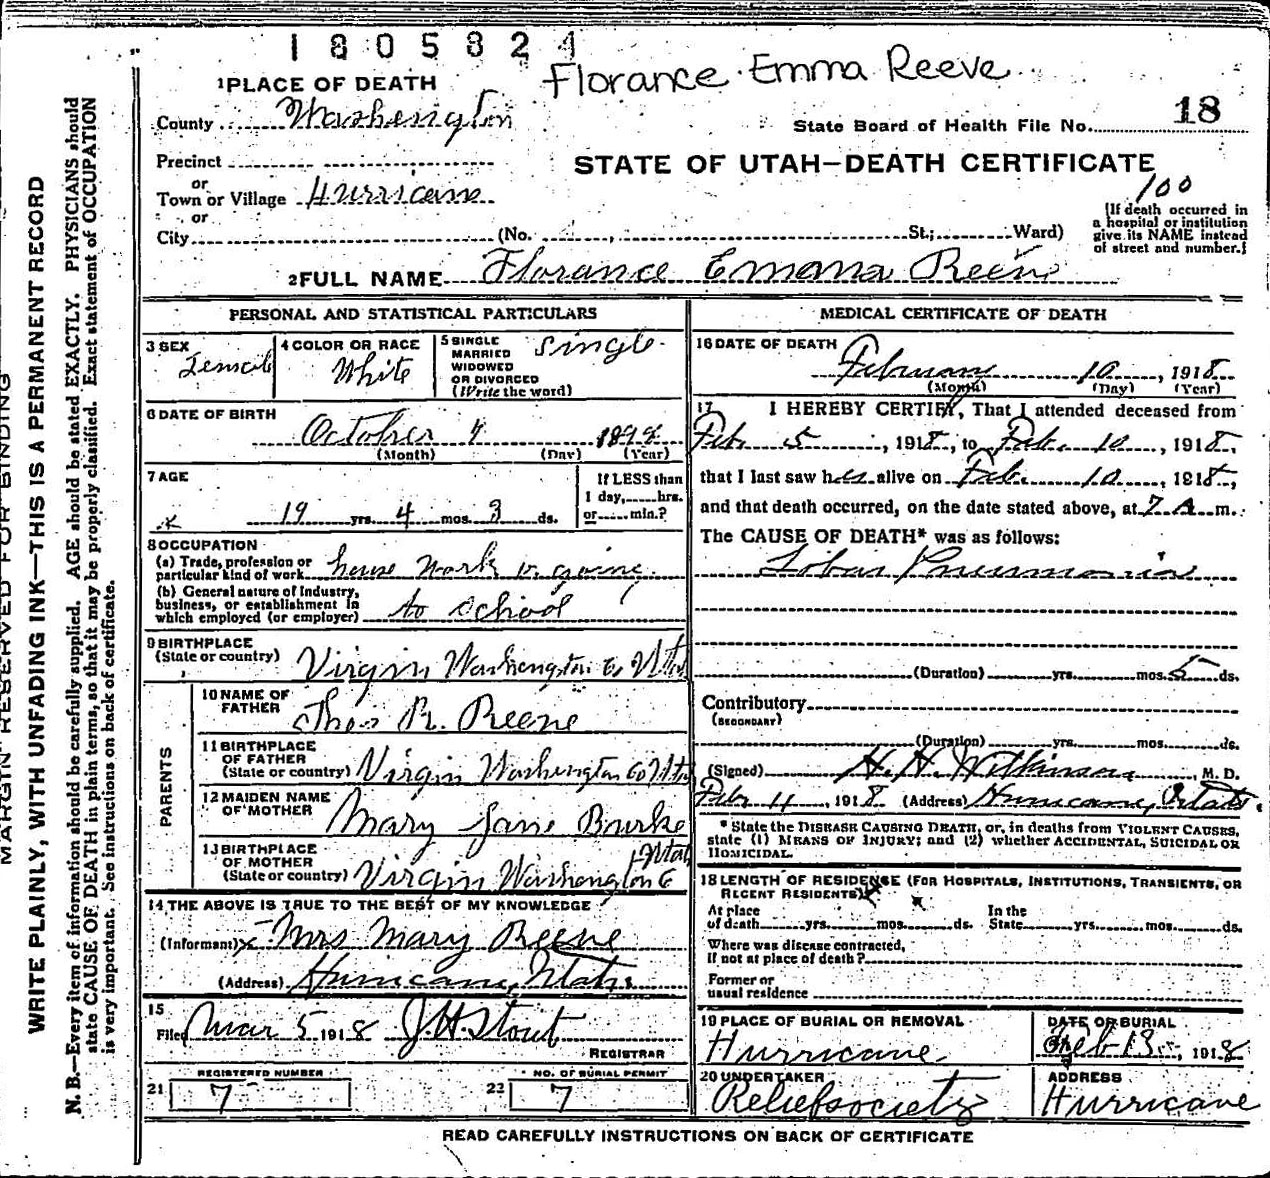 1805824
Florance Emma Reeve
1 PLACE OF DEATH
County Washington
18
State Board of Health File No.
Precinct
STATE OF UTAH—DEATH CERTIFICATE
or
Town or Village Hurricane
100
or
City (No. St.; Ward)
[If death occurred in
a hospital or institution
give its NAME instead
of street and number.]
2 FULL NAME Florance Emma Reeve
PERSONAL AND STATISTICAL PARTICULARS
3 SEX Female
4 COLOR OR RACE White
5 SINGLE
MARRIED
WIDOWED
OR DIVORCED
(Write the word)
Single
6 DATE OF BIRTH
October 7 1898
(Month) (Day) (Year)
7 AGE
19 yrs. 4 mos. 3 ds.
If LESS than
1 day, hrs.
or min.?
8 OCCUPATION
(a) Trade, profession or
particular kind of work house work & going
(b) General nature of Industry,
business, or establishment in
which employed (or employer) to school
9 BIRTHPLACE
(State or country) Virgin Washington Co Utah
PARENTS
10 NAME OF
FATHER Thos R. Reeve
11 BIRTHPLACE
OF FATHER
(State or country) Virgin Washington Co Utah
12 MAIDEN NAME
OF MOTHER Mary Jane Burke
13 BIRTHPLACE
OF MOTHER
(State or country) Virgin Washington Co Utah
14 THE ABOVE IS TRUE TO THE BEST OF MY KNOWLEDGE
(Informant) Mrs Mary Reeve
(Address) Hurricane, Utah
15
Filed Mar 5 1918 J.H. Stout
REGISTRAR
REGISTERED NUMBER
21 7
NO. OF BURIAL PERMIT
22 7
MEDICAL CERTIFICATE OF DEATH
16 DATE OF DEATH
February 10, 1918
(Month) (Day) (Year)
17 I HEREBY CERTIFY, That I attended deceased from
Feb. 5, 1918, to Feb. 10, 1918,
that I last saw her alive on Feb. 10, 1918,
and that death occurred, on the date stated above, at 7 A m.
The CAUSE OF DEATH* was as follows:
Lobar Pneumonia
(Duration) yrs. mos. 5 ds.
Contributory
(SECONDARY)
(Duration) yrs. mos. ds.
(Signed) H. H. Wilkinson, M. D.
Feb 11, 1918 (Address) Hurricane, Utah.
* State the DISEASE CAUSING DEATH, or, in deaths from VIOLENT CAUSES,
state (1) MEANS OF INJURY; and (2) whether ACCIDENTAL, SUICIDAL OR
HOMICIDAL.
18 LENGTH OF RESIDENCE (FOR HOSPITALS, INSTITUTIONS, TRANSIENTS, OR
RECENT RESIDENTS)
At place
of death yrs. mos. ds.
In the
State yrs. mos. ds.
Where was disease contracted,
if not at place of death?
Former or
usual residence
19 PLACE OF BURIAL OR REMOVAL
Hurricane
DATE OF BURIAL
Feb 13, 1918
20 UNDERTAKER
Relief society
ADDRESS
Hurricane
READ CAREFULLY INSTRUCTIONS ON BACK OF CERTIFICATE
MARGIN RESERVED FOR BINDING
WRITE PLAINLY, WITH UNFADING INK—THIS IS A PERMANENT RECORD
N. B.—Every item of information should be carefully supplied. AGE should be stated EXACTLY. PHYSICIANS should
state CAUSE OF DEATH in plain terms, so that it may be properly classified. Exact statement of OCCUPATION
is very important. See instructions on back of certificate.